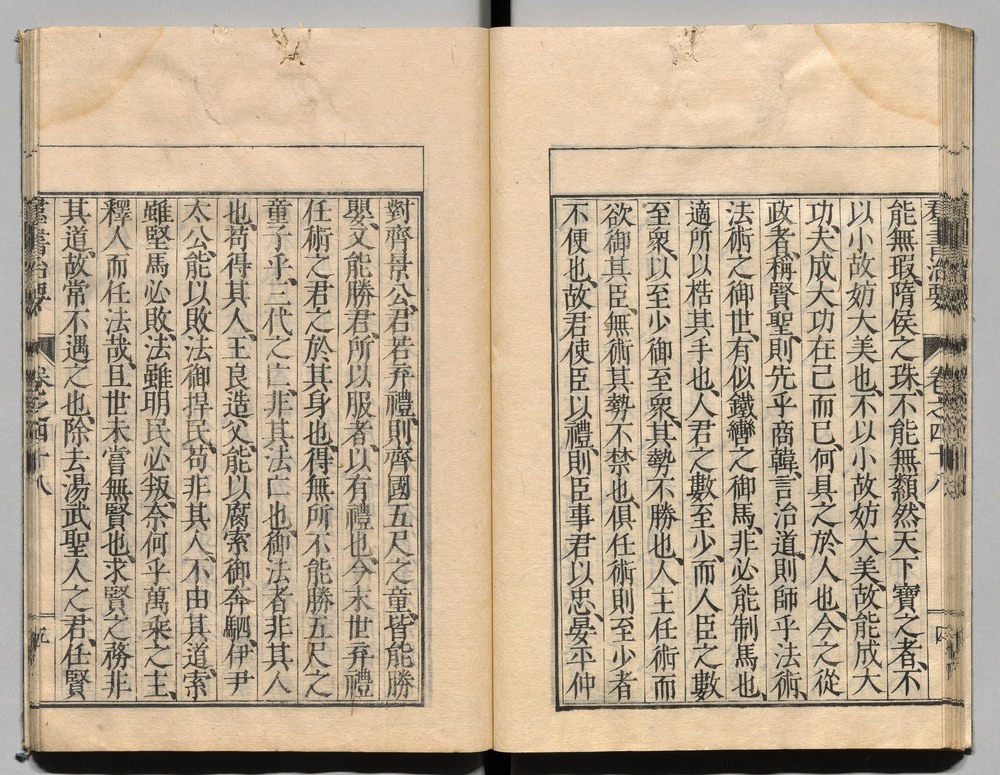 羣書治要 卷之四十八 四
能無瑕、隋侯之珠、不能無纇、然天下寶之者、不
以小故妨大美也、不以小故妨大美、故能成大
功、夫成大功在己而已、何具之於人也、今之從
政者、稱賢聖、則先乎商韓、言治道、則師乎法術、
法術之御世、有似鐵轡之御馬、非必能制馬也、
適所以梏其手也、人君之數至少、而人臣之數
至衆、以至少御至衆、其勢不勝也、人主任術而
欲御其臣、無術其勢不禁也、俱任術則至少者
不便也、故君使臣以禮、則臣事君以忠、晏平仲
對齊景公、君若弃禮、則齊國五尺之童、皆能勝
嬰、又能勝君、所以服者、以有禮也、今末世弃禮
任術之君之於其身也、得無所不能勝五尺之
童子乎、三代之亡、非其法亡也、御法者非其人
也、苟得其人、王良造父、能以腐索御奔駟、伊尹
太公、能以敗法御捍民、苟非其人、不由其道、索
雖堅馬必敗、法雖明民必叛、奈何乎萬乘之主、
釋人而任法哉、且世未嘗無賢也、求賢之務非
其道、故常不遇之也、除去湯武聖人之君、任賢
羣書治要 卷之四十八 五